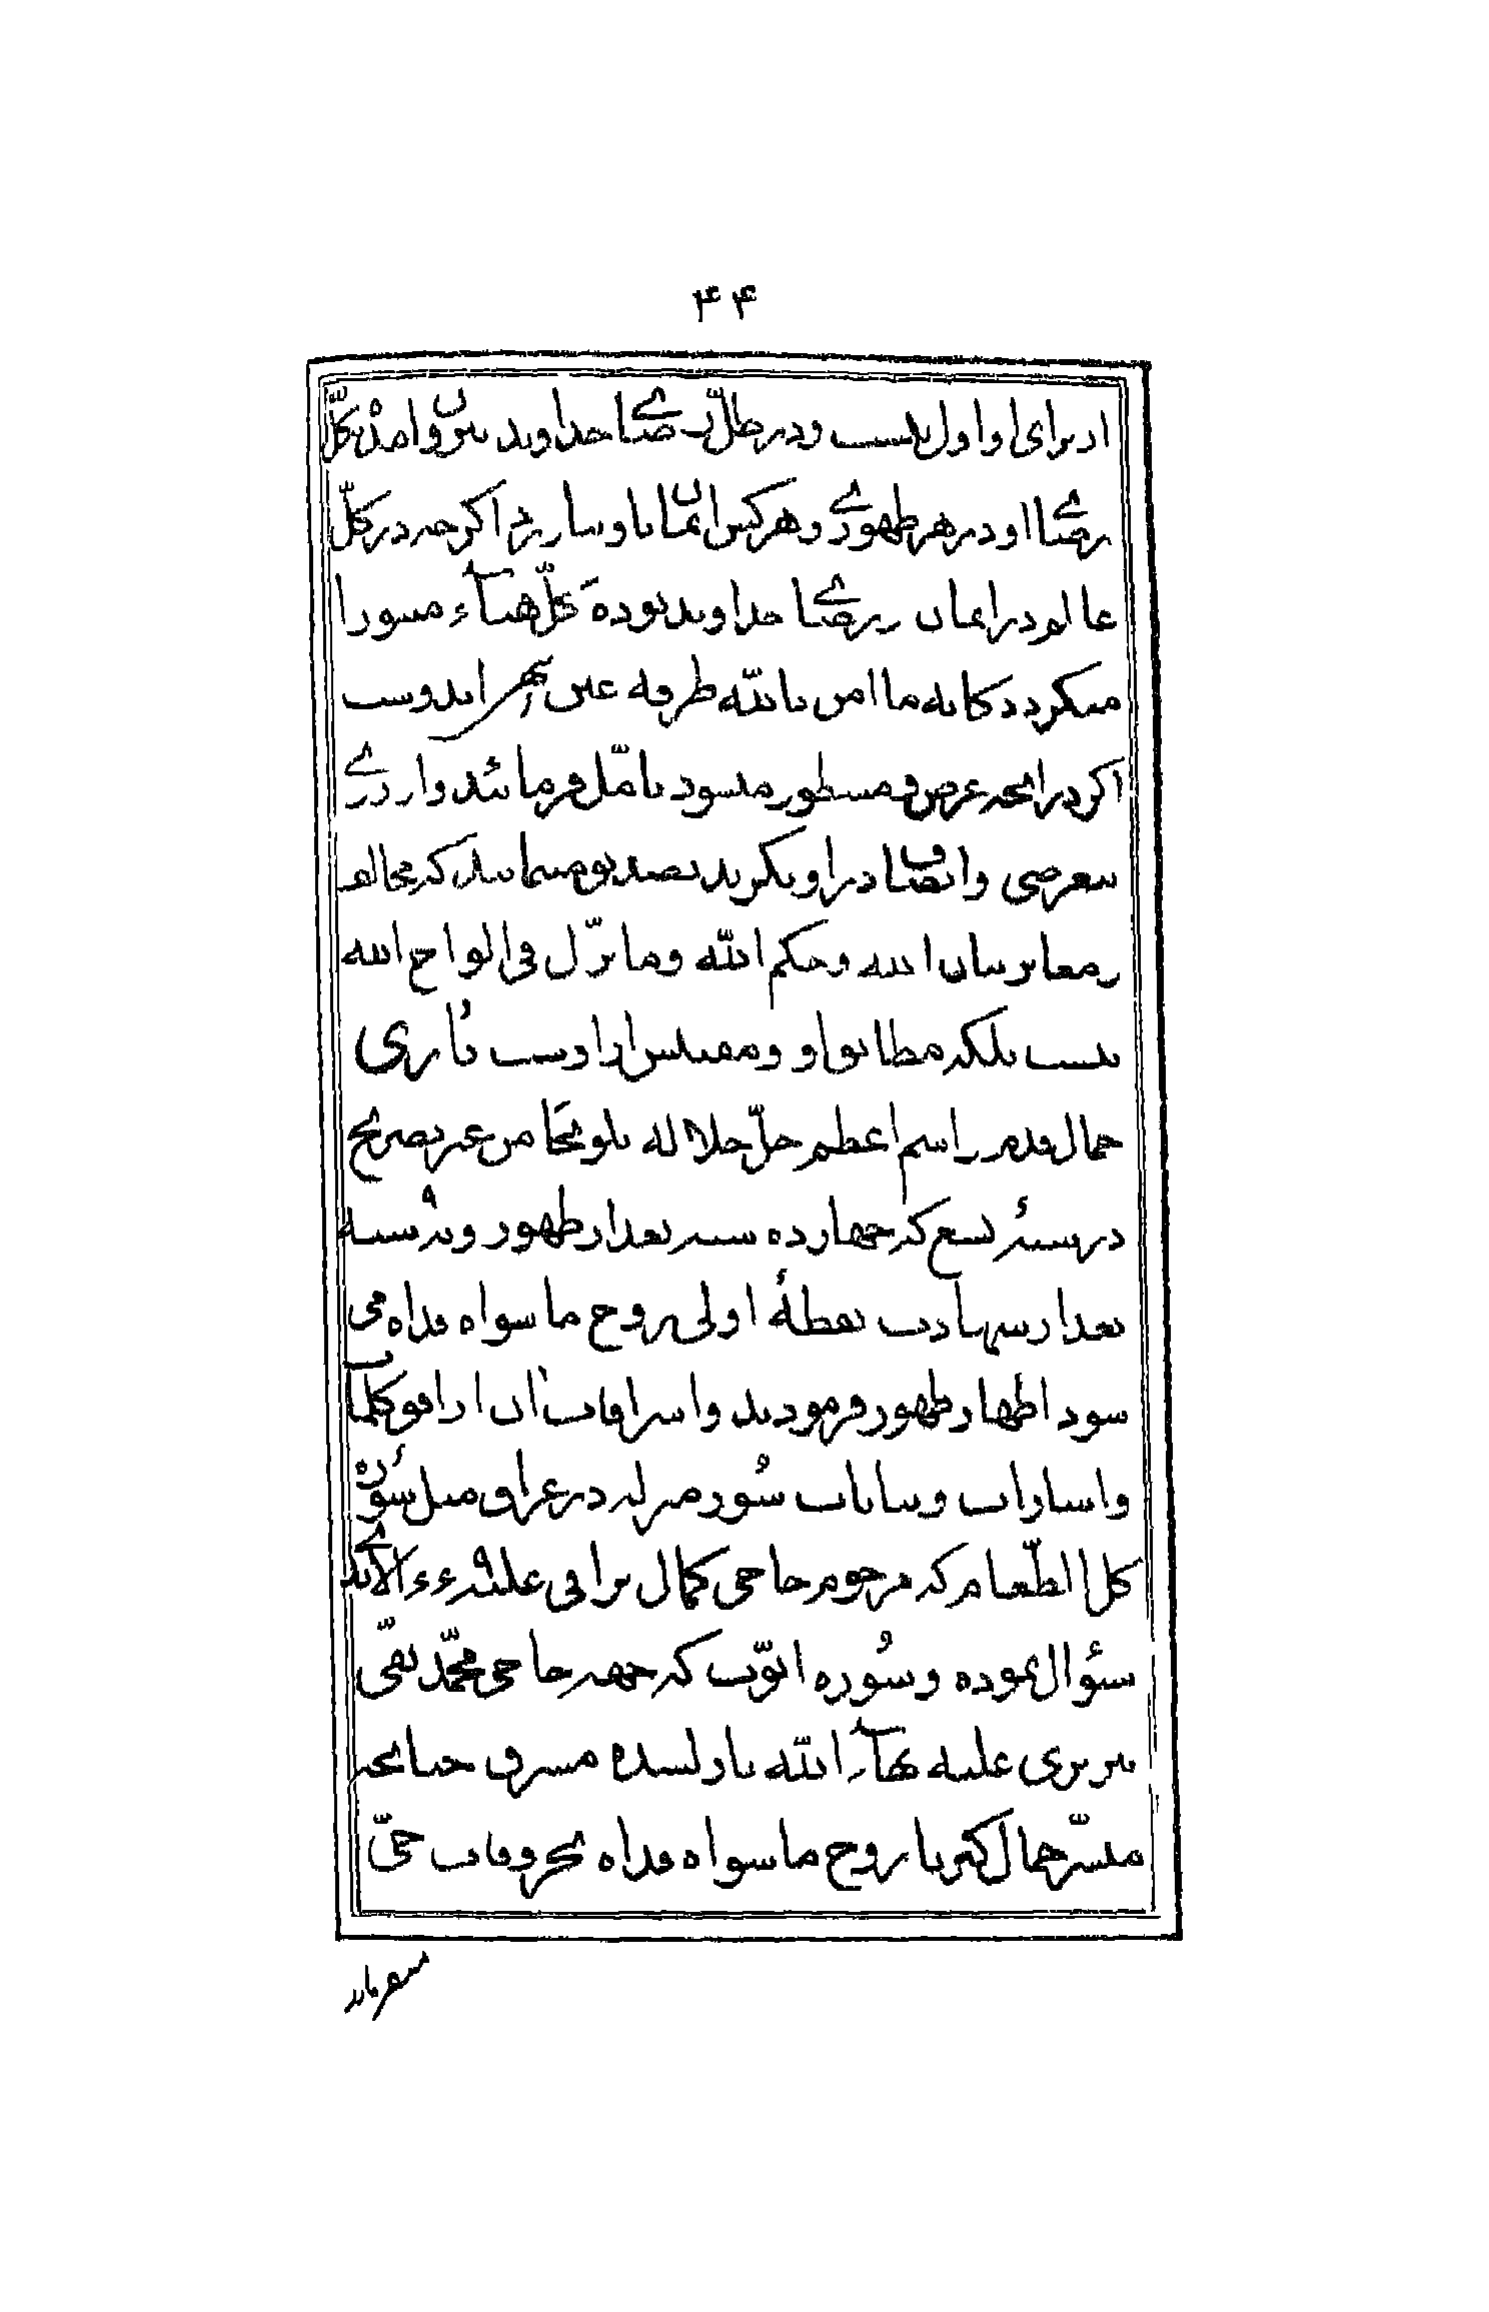 ۴۴
از برای او اول نیست و در ظلّ رضای خداوند بیرون آمدن کلّ
رضای او در هر ظهوری و هر کس ایمان باو نیارد اگر چه در کلّ
عالم در ایمان و رضای خداوند بوده کلّ هباء منثورا
میگردد کانه ما امن بالله طرفة عین انتهی ایدوست
اگر در آنچه عرض و مسطور میشود تأمّل فرمائید و از روی
بیغرضی و انصاف در او نگرید تصدیق مینمائید که مخالف
و مغایر بیان الله و حکم الله و ما نزّل فی الواح الله
نیست بلکه مطابق او و مقتبس از اوست باری
جمال قدم و اسم اعظم جلّ جلاله تلویحا من غیر تصریح
در سنهٔ تسع که چهارده سنه بعد از ظهور و نه سنه
بعد از شهادت نقطهٔ اولی روح ما سواه فداه می
شود اظهار ظهور فرمودند و اشراقات آن از افق کلمات
و اشارات و بیانات سُور منزله در عراق مثل سورهٔ
کل الطّعام که مرحوم حاجی کمال نراقی علیه ۹ءء الابهی
سؤال نموده و سُوره ایّوب که جهه حاجی محمّد تقی
نیریزی علیه بهاء الله نازلشده مشرق چنانچه
مبشّر جمال کبریا روح ما سواه فداه بحروفات حیّ
میفرماید